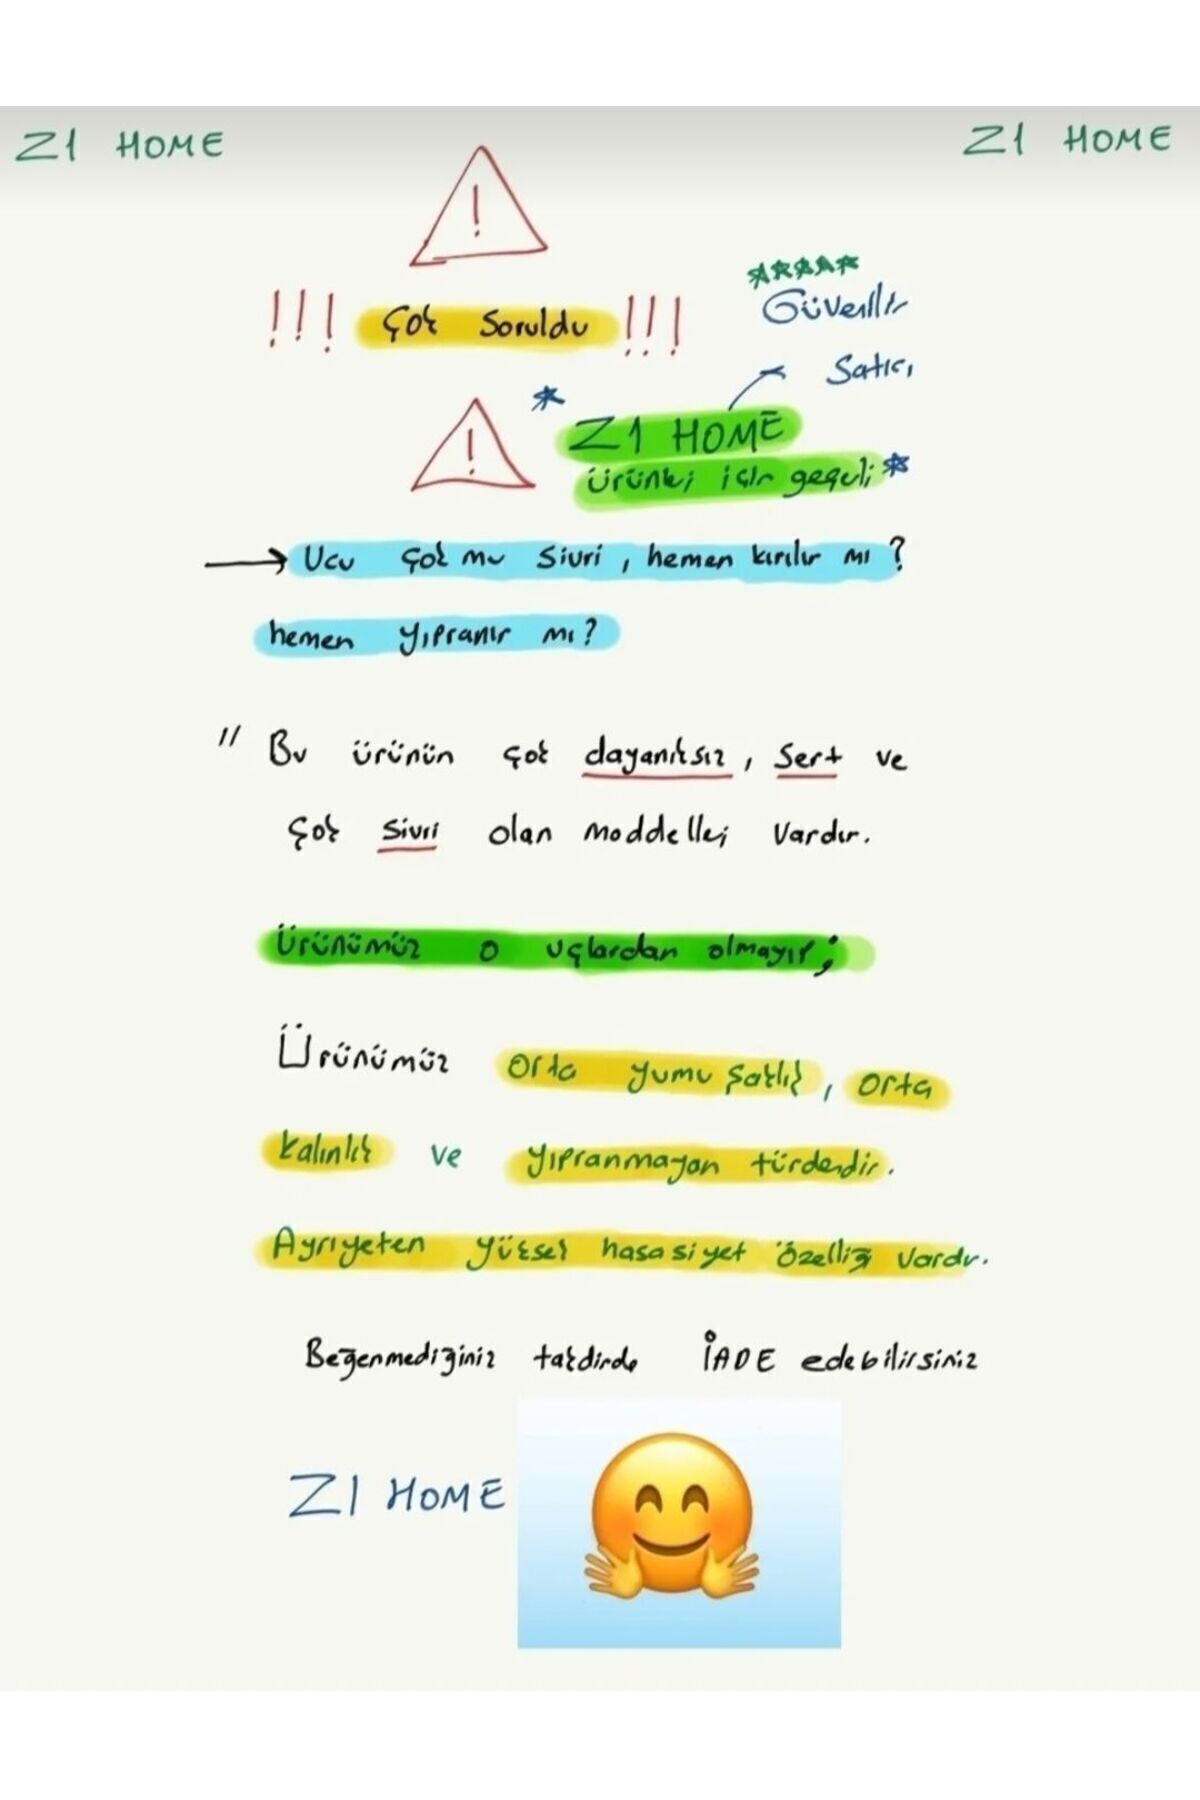 Z1 HOME
Z1 HOME
!
!!! Çok Soruldu !!!
Güvenilir
Satıcı
!
Z1 HOME
ürünleri için geçerli
Ucu çok mu sivri, hemen kırılır mı?
hemen yıpranır mı?
" Bu ürünün çok dayanıksız, sert ve
çok sivri olan moddelleri vardır.
Ürünümüz o uçlardan olmayıp;
Ürünümüz orta yumuşaklık, orta
kalınlık ve yıpranmayan türdendir.
Ayrıyeten yüksek hasasiyet özelliği vardır.
Beğenmediğiniz takdirde İADE edebilirsiniz
Z1 HOME